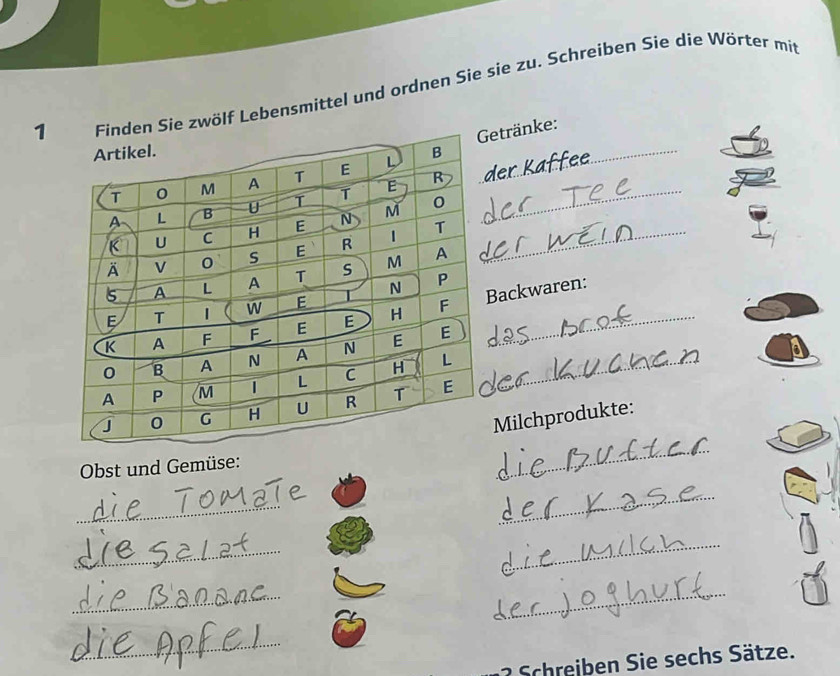 1 Finden Sie zwölf Lebensmittel und ordnen Sie sie zu. Schreiben Sie die Wörter mit
Artikel.
T O M A T E L B
A L B U T T E R
K U C H E N M O
Ä V O S E R I T
S A L A T S M A
E T I W E I N P
K A F F E E H F
O B A N A N E E
A P M I L C H L
J O G H U R T E
Getränke:
der Kaffee
der Tee
der Wein
Backwaren:
das Brot
der Kuchen
Milchprodukte:
die Butter
der Kase
die Milch
der joghurt
Obst und Gemüse:
die Tomate
die Salat
die Banane
die Apfel
2 Schreiben Sie sechs Sätze.